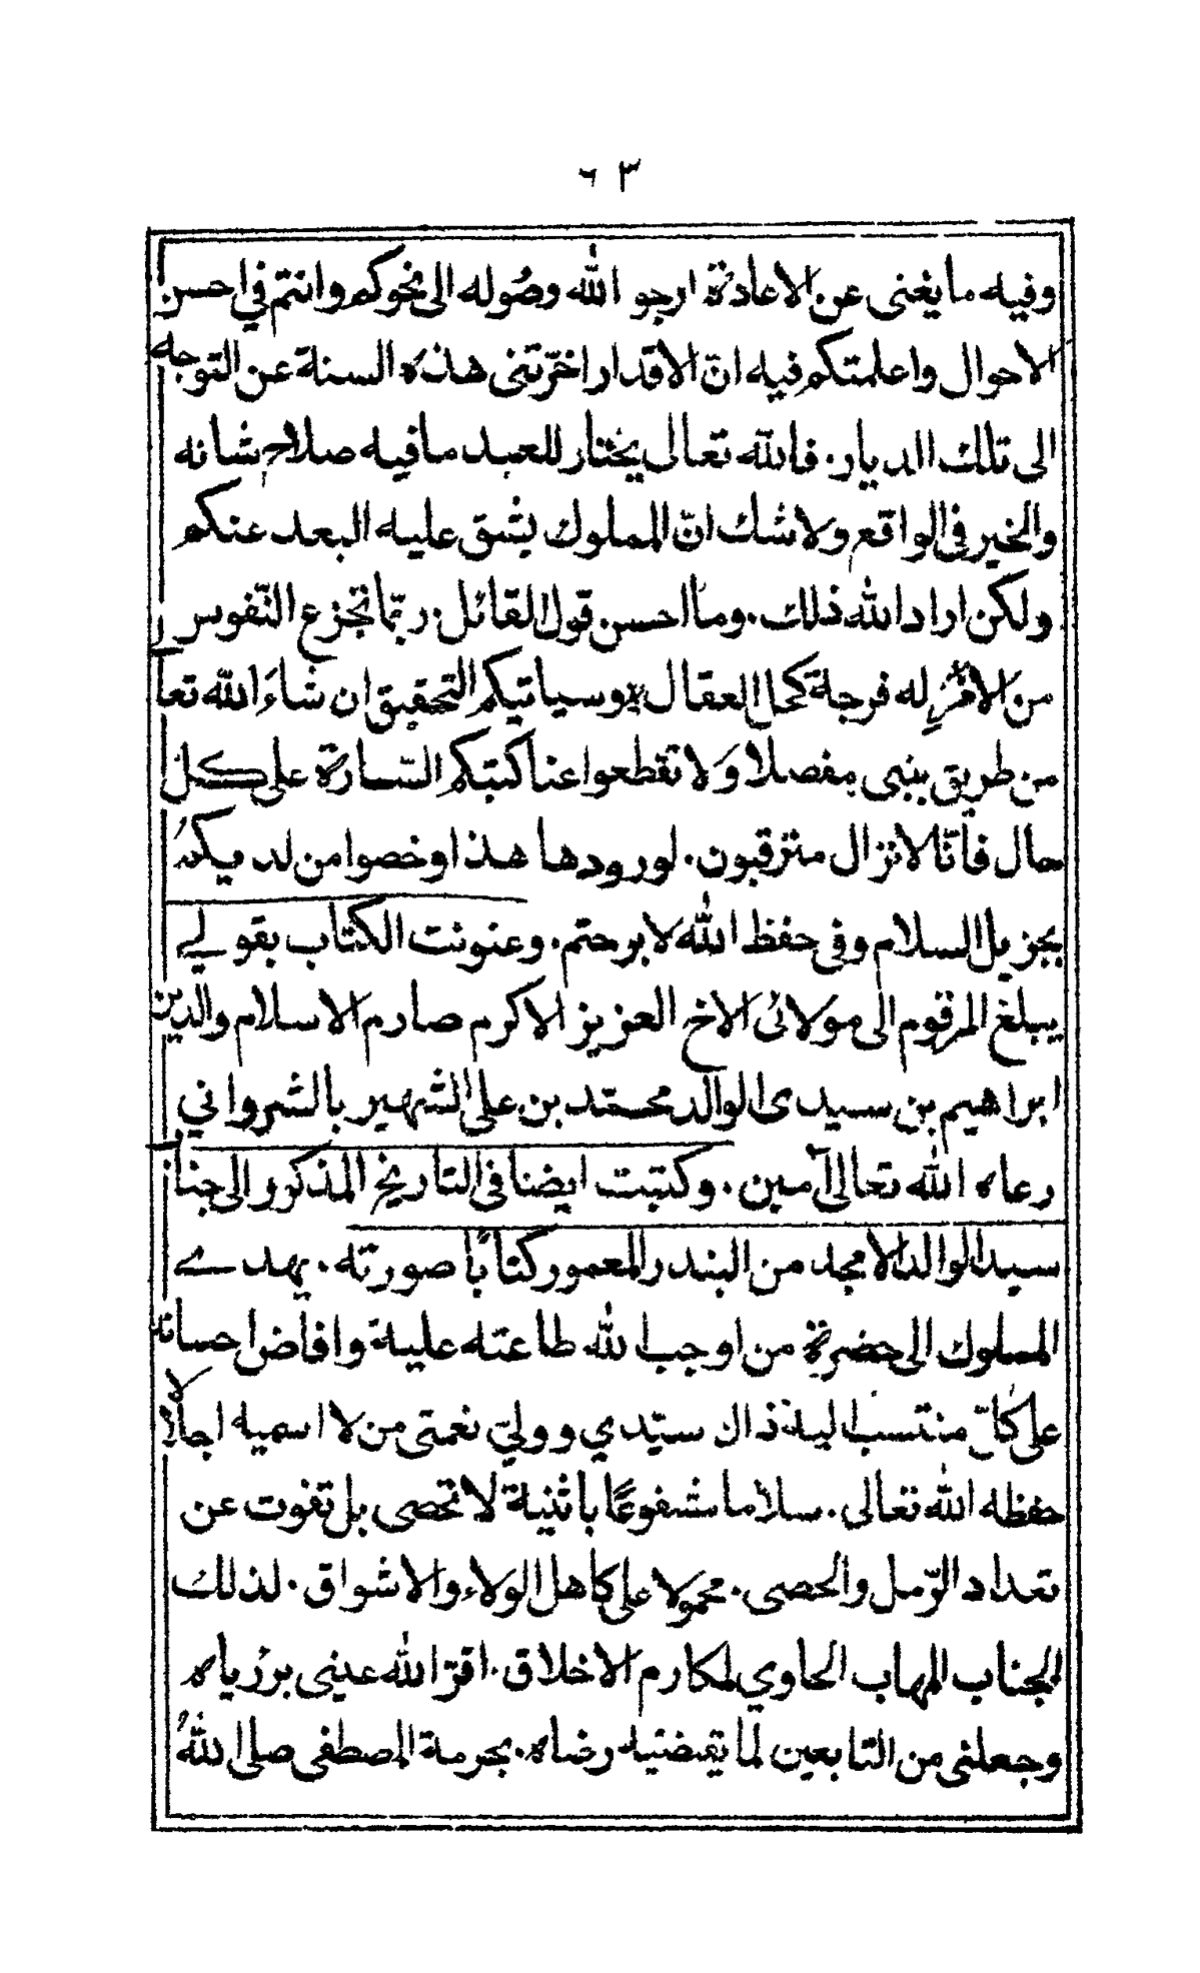 ٦٣
وفيه ما يغنى عن الاعادة ارجو الله وصوله الى نحوكم وانتم في احسن
الاحوال واعلمتكم فيه انّ الاقدار اخّرتنى هذه السنة عن التوجه
الى تلك الديار. فالله تعالى يختار للعبد ما فيه صلاح شانه
والخير فى الواقع ولا شك انّ المملوك يشق عليه البعد عنكم
ولكن اراد الله ذلك. وما احسن قول القائل. ربّما تجزع النّفوس
من الامر له فرجة كحل العقال وسياتيكم التحقيق ان شاءَ الله تعا
من طريق بنبى مفصلا وَلا تقطعوا عنا كتبكم السّارة على كل
حال فانّا لا نزال مترقبون. لورودها هذا وخصوا من لديكم
بجزيل السلام وفى حفظ الله لا برحتم. وعنونت الكتاب بقولے
يبلغ المرقوم الى مولائى الاخ العزيز الاكرم صارم الاسلام والدين
ابراهيم بن سيدى الوالد محمّد بن على الشهير بالشرواني
رعاه الله تعالى آمين. وكتبت ايضا فى التاريخ المذكور الى جناب
سيد الوالد الامجد من البندر المعمور كتابًا صورته. يهدے
المملوك الى حضرة من اوجب الله طاعته عليه وافاض احسانه
على كلّ منتسب اليه ذاك سيّدي ووليّ نعمتى من لا اسميه اجلالا
حفظه الله تعالى. سلاما مشفوعًا باثنية لا تحصى بل تفوت عن
تعداد الرّمل والحصى. محمولا على كاهل الولاء والاشواق. لذلك
الجناب المهاب الحاوي لمكارم الاخلاق. اقرّ الله عينى برؤياه
وجعلنى من التابعين لما يقتضيه رضاه. بحرمة المصطفى صلى اللهُ